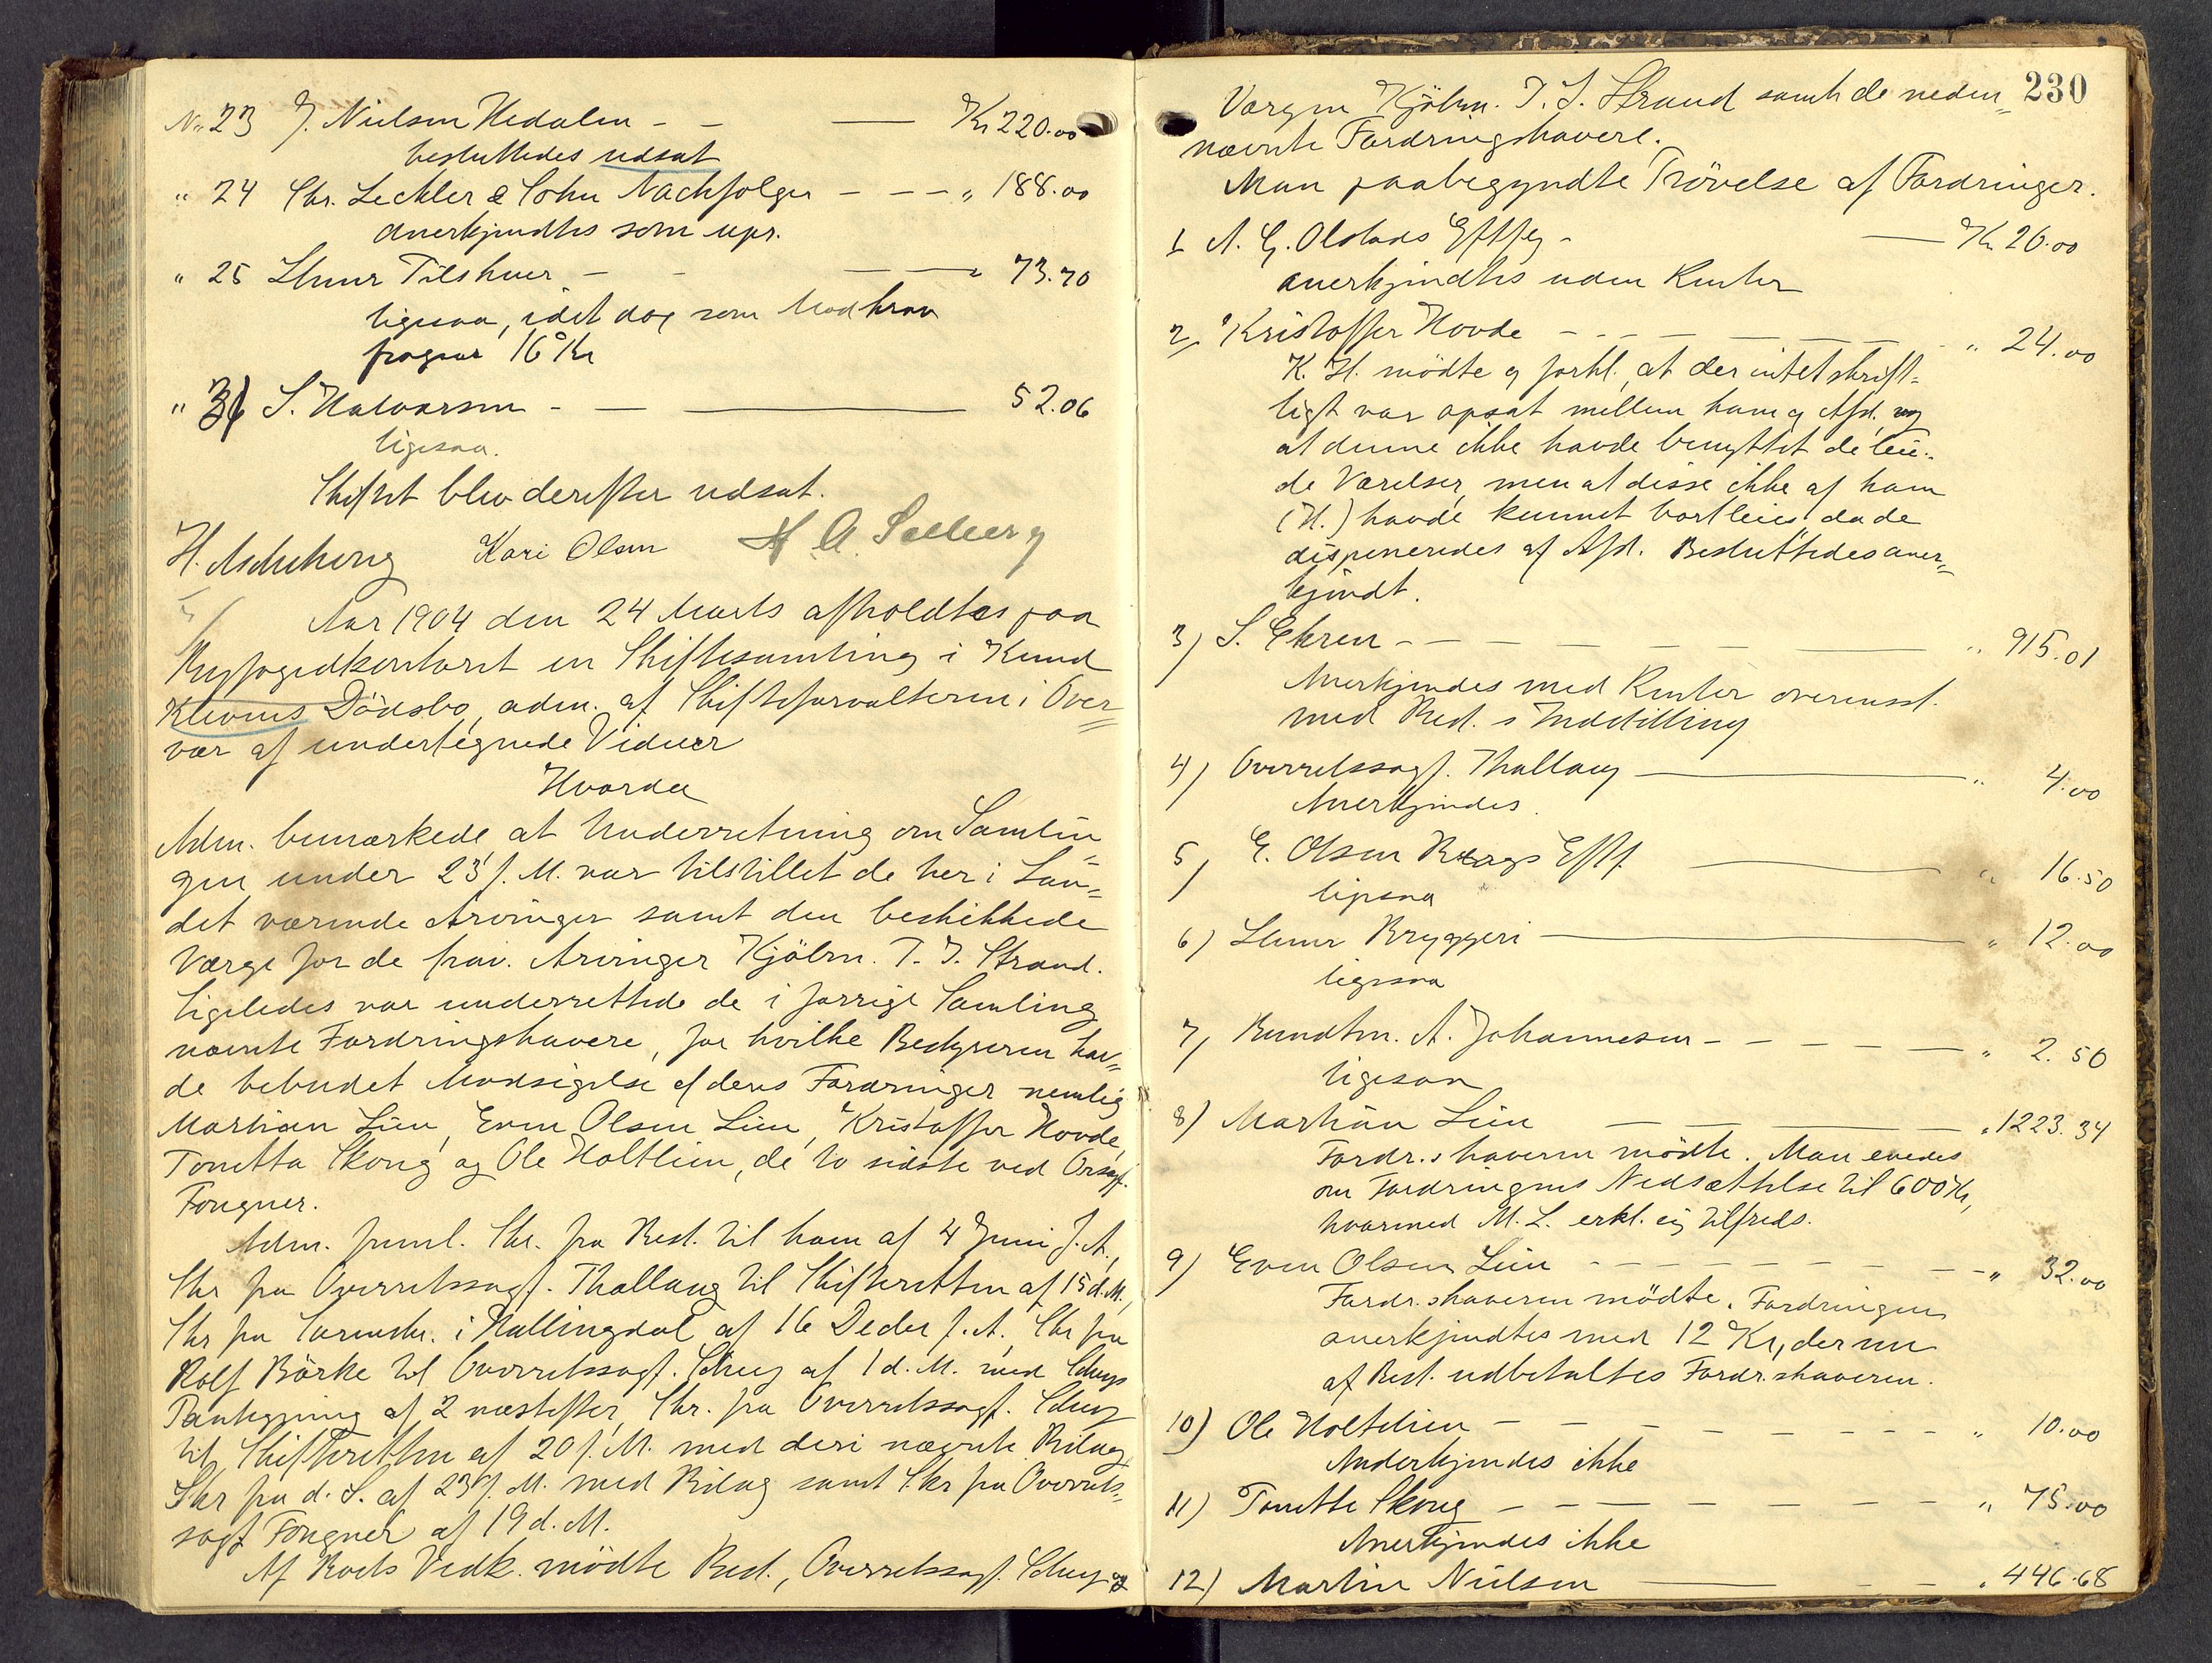 No 23 J. Nielsen Hedalen - - — Kr 220.00
besluttedes udsat
" 24 Chr. Leckler & Sohn Nachfolger - - - " 188.00
anerkjendtes som upr.
" 25 Lhmr Tilskuer - - — — " 73.70
ligesaa, idet dog som Modkrav
fragaar 16 Kr
" 26 S. Halvorsen - — — 52.06
ligesaa.
Skiftet blev derefter udsat.
H. Aschehoug Kari Olsen H. A. Solberg
Aar 1904 den 24 Marts afholdtes paa
Byfogedkontoret en Skiftesamling i Knud
Klevens Dödsbo, adm. af Skifteforvalteren i Over-
vær af undertegnede Vidner
Hvorda
Adm. bemærkede, at Underretning om Samlin-
gen under 23 f. M. var tilstillet de her i Lan-
det værende Arvinger samt den beskikkede
Værge for de frav. Arvinger Kjöbm. T. J. Strand.
Ligeledes var underrettede de i forrige Samling
nævnte Fordringshavere, for hvilke Bestyreren hav-
de bebudet Modsigelse af deres Fordringer nemlig
Martian Lien, Even Olsen Lien, Kristoffer Hovde,
Tonetta Skoug og Ole Holtlien, de to sidste ved Orsagf.
Fougner.
Adm. freml. Skr. fra Best. til ham af 4 Juni f. A.,
Skr fra Overretssagf. Thallaug til Skifteretten af 15 d. M.,
Skr fra Sorenskr. i Hallingdal af 16 Decbr f. A., Skr fra
Rolf Börke til Overretssagf. Schey af 1 d. M. med Scheys
Paategning af 2 næstefter, Skr. fra Overretssagf. Schey
til Skifteretten af 20 f. M. med deri nævnte Bilag
Skr fra d. S. af 23 f. M. med Bilag samt Skr fra Overrets-
sagf Fougner af 19 d. M.
Af Boets Vedk. mödte Best., Overretssagf. Schey og
230
Værgen Kjöbm. T. J. Strand samt de neden-
nævnte Fordringshavere.
Man paabegyndte Prövelse af Fordringer.
1 A. G. Olstads Eftfg - — Kr 26.00
anerkjendtes uden Renter
2, Kristoffer Hovde - - - — — — " 24.00
K. H. mödte og forkl., at der intet skrift-
ligt var opsat mellem ham og Afd. og
at denne ikke havde benyttet de leie-
de Værelser, men at disse ikke af ham
(H.) havde kunnet bortleies, da de
disponeredes af Afd. Besluttedes aner-
kjendt.
3) S. Ehren - - — — — — " 915.01
Anerkjendes med Renter overensst.
med Best.s Indstilling
4) Overretssagf. Thallaug — " 4.00
Anerkjendes.
5, E. Olsen Bergs Eftf — " 16.50
ligesaa
6) Lhmr Bryggeri — " 12.00
ligesaa
7, Bundtm. A. Johannesen - - - - — " 2.50
ligesaa
8) Martian Lien — — — " 1223.34
Fordr.shaveren mödte. Man enedes
om Fordringens Nedsættelse til 600 Kr,
hvormed M. L. erkl. sig tilfreds.
9) Even Olsen Lien - - - - - - - - — " 32.00
Fordr.shaveren mödte. Fordringen
anerkjendtes med 12 Kr, der nu
af Best. udbetaltes Fordr.shaveren.
10) Ole Holtelien - - - - - - - " 10.00
Anderkjendes ikke
11) Tonette Skoug - - — - - - - " 75.00
Anerkjendes ikke
12) Martin Nielsen — - - " 446.68